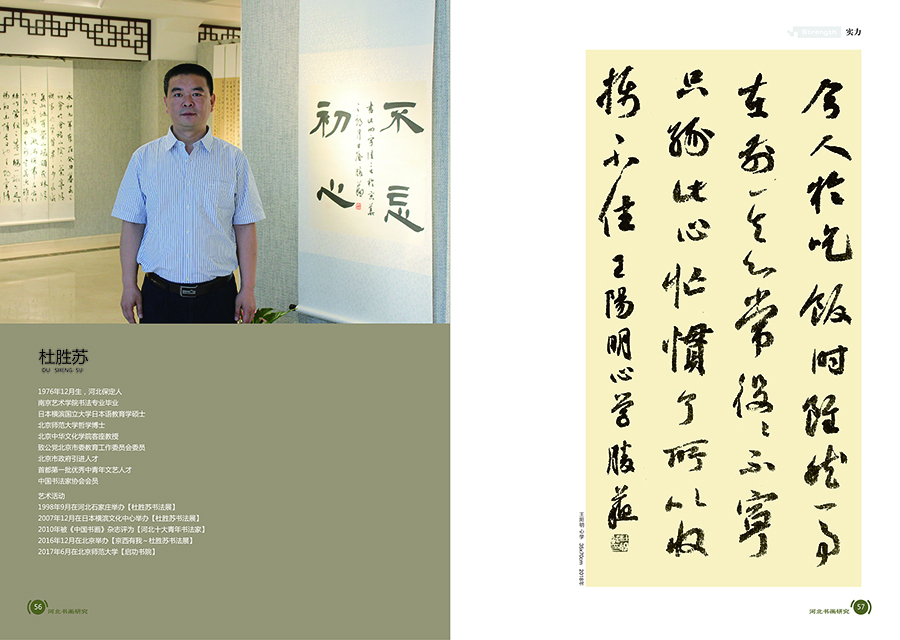 不忘
初心
杜胜苏
DU SHENG SU
1976年12月生，河北保定人
南京艺术学院书法专业毕业
日本横滨国立大学日本语教育学硕士
北京师范大学哲学博士
北京中华文化学院客座教授
致公党北京市委教育工作委员会委员
北京市政府引进人才
首都第一批优秀中青年文艺人才
中国书法家协会会员
艺术活动
1998年9月在河北石家庄举办【杜胜苏书法展】
2007年12月在日本横滨文化中心举办【杜胜苏书法展】
2010年被《中国书画》杂志评为【河北十大青年书法家】
2016年12月在北京举办【京西有我－杜胜苏书法展】
2017年6月在北京师范大学【启功书院】
56 河北书画研究
Strength 实力
今人於吃飯时雖無一事
在前其心常役役不寧
只緣此心忙慣了所以收
攝不住 王陽明心学 勝蘇
王阳明 心学 35x70cm 2018年
河北书画研究 57